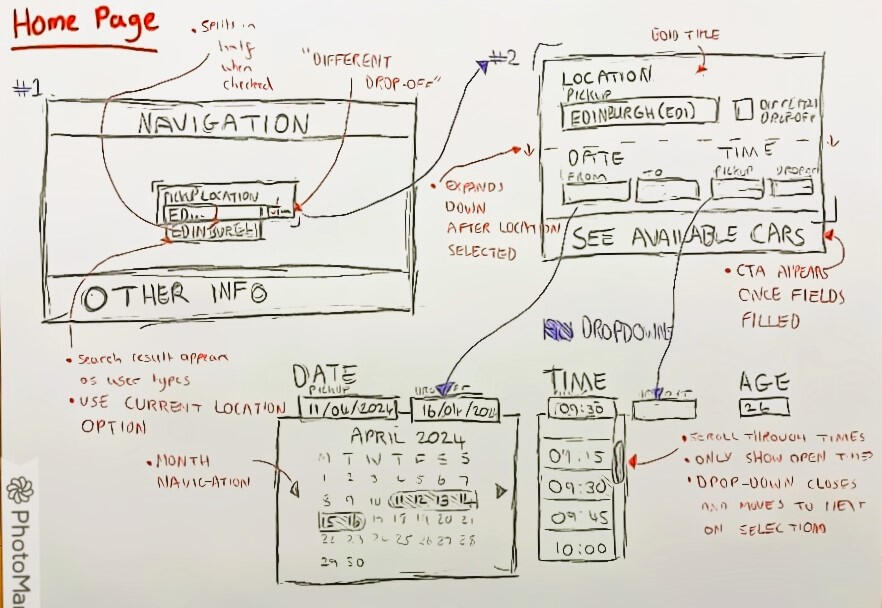 Home Page
• Splits in
half
when
checked
"DIFFERENT
DROP-OFF"
#1
NAVIGATION
PICKUP LOCATION
ED...
EDINBURGH
OTHER INFO
• Search result appear
as user types
• USE CURRENT LOCATION
OPTION
#2
BOLD TITLE
LOCATION
PICKUP
EDINBURGH (EDI)
DIFFERENT
DROP-OFF
DATE
TIME
FROM
TO
PICKUP
DROPOFF
SEE AVAILABLE CARS
• EXPANDS
DOWN
AFTER LOCATION
SELECTED
• CTA APPEARS
ONCE FIELDS
FILLED
DROPDOWNS
DATE
PICKUP
11/04/2024
16/04/2024
APRIL 2024
M T W T F S S
1 2 3 4 5 6 7
8 9 10 11 12 13 14
15 16 17 18 19 20 21
22 23 24 25 26 27 28
29 30
• MONTH
NAVIGATION
TIME
09:30
09:15
09:30
09:45
10:00
AGE
26
• SCROLL THROUGH TIMES
• ONLY SHOW OPEN TIMES
• DROP-DOWN CLOSES
AND MOVES TO NEXT
ON SELECTION